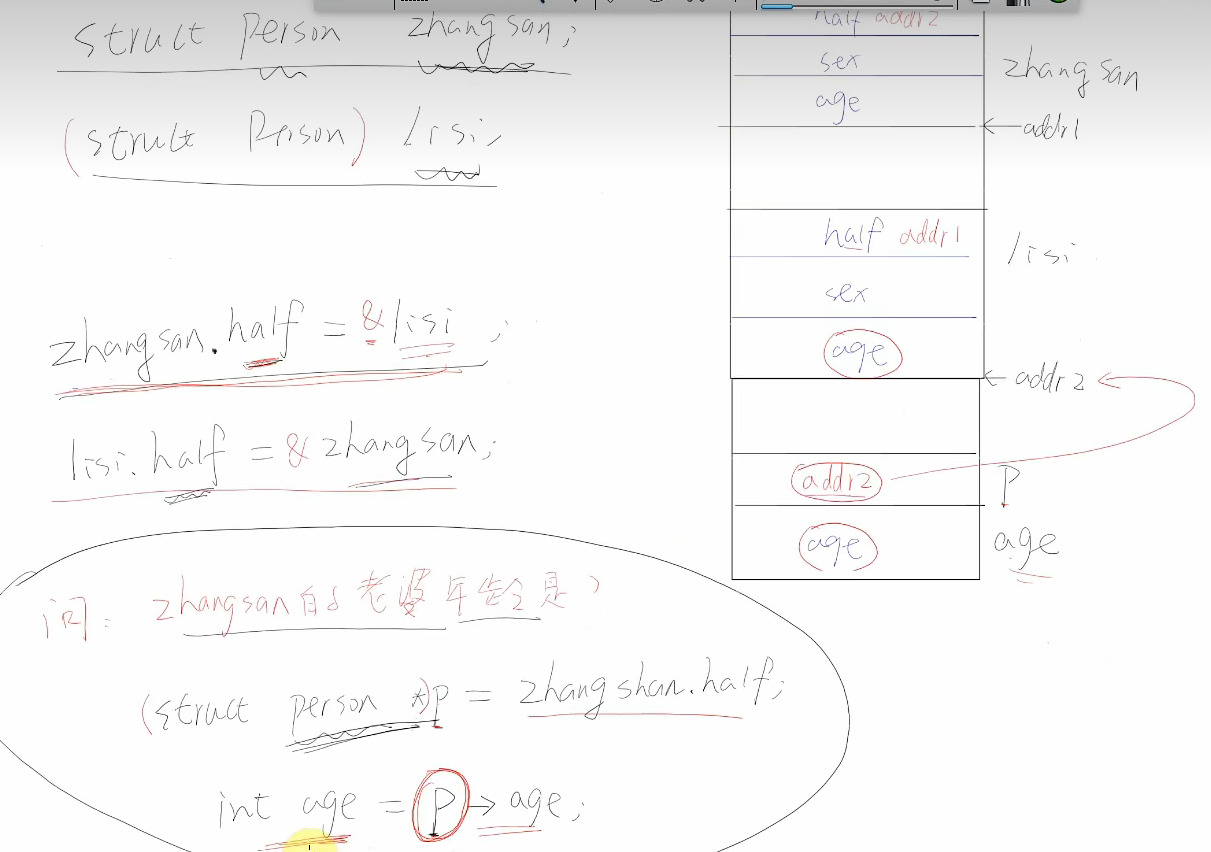 struct person zhangsan;
(struct Person) lisi;
zhangsan.half = &lisi;
lisi.half = &zhangsan;
问: zhangsan的老婆年龄是?
(struct person *)p = zhangshan.half;
int age = P→age;
half addr2
sex
age
zhangsan
←addr1
half addr1
lisi
sex
age
← addr2
addr2
P
age
age